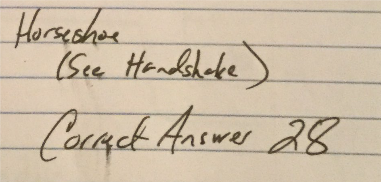 Horseshoe
(See Handshake)
Correct Answer 28